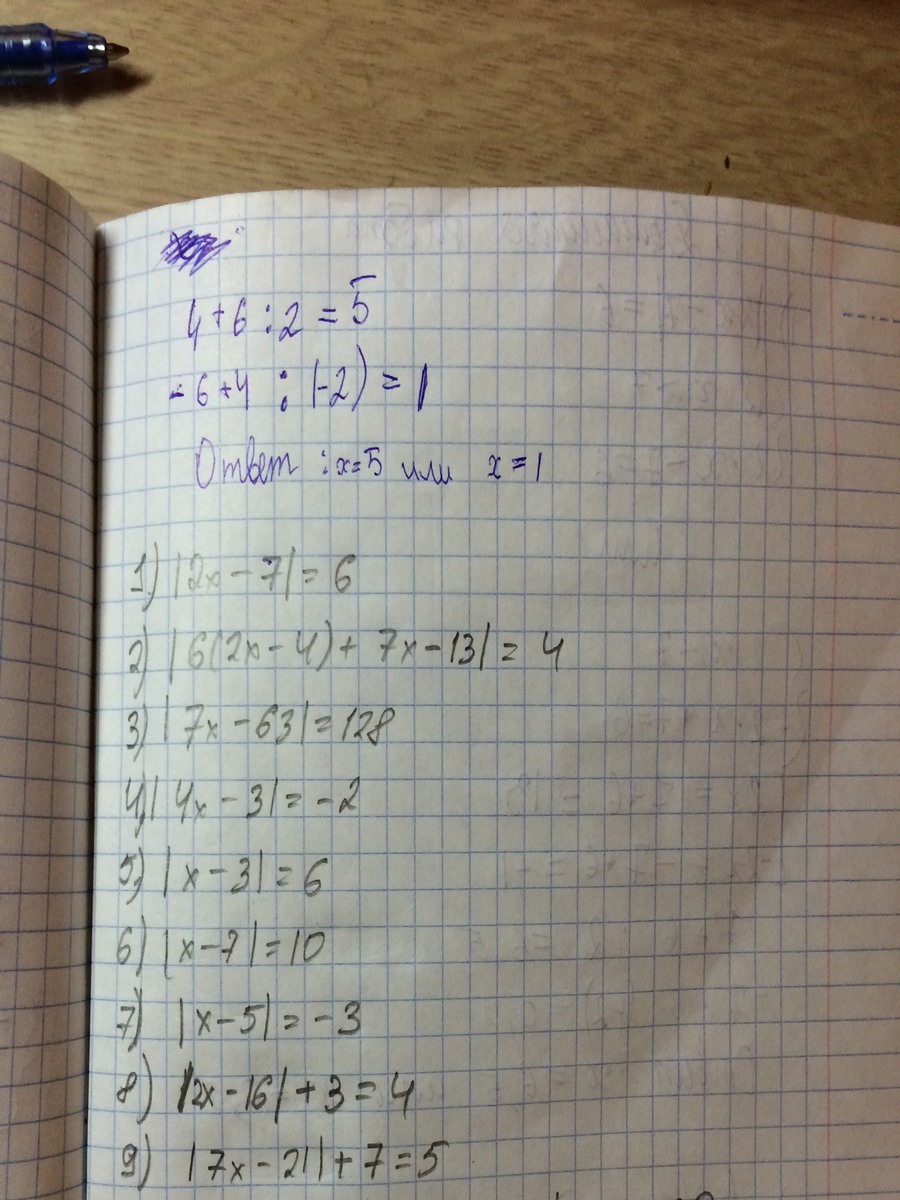 4+6 : 2 = 5
-6+4 : (-2) = 1
Ответ : x=5 или x=1
1) |2x-7|=6
2) |6(2x-4)+ 7x-13|= 4
3) |7x-63|=128
4) |4x-3|=-2
5) |x-3|=6
6) |x-7|=10
7) |x-5|=-3
8) |2x-16|+3=4
9) |7x-21|+7=5